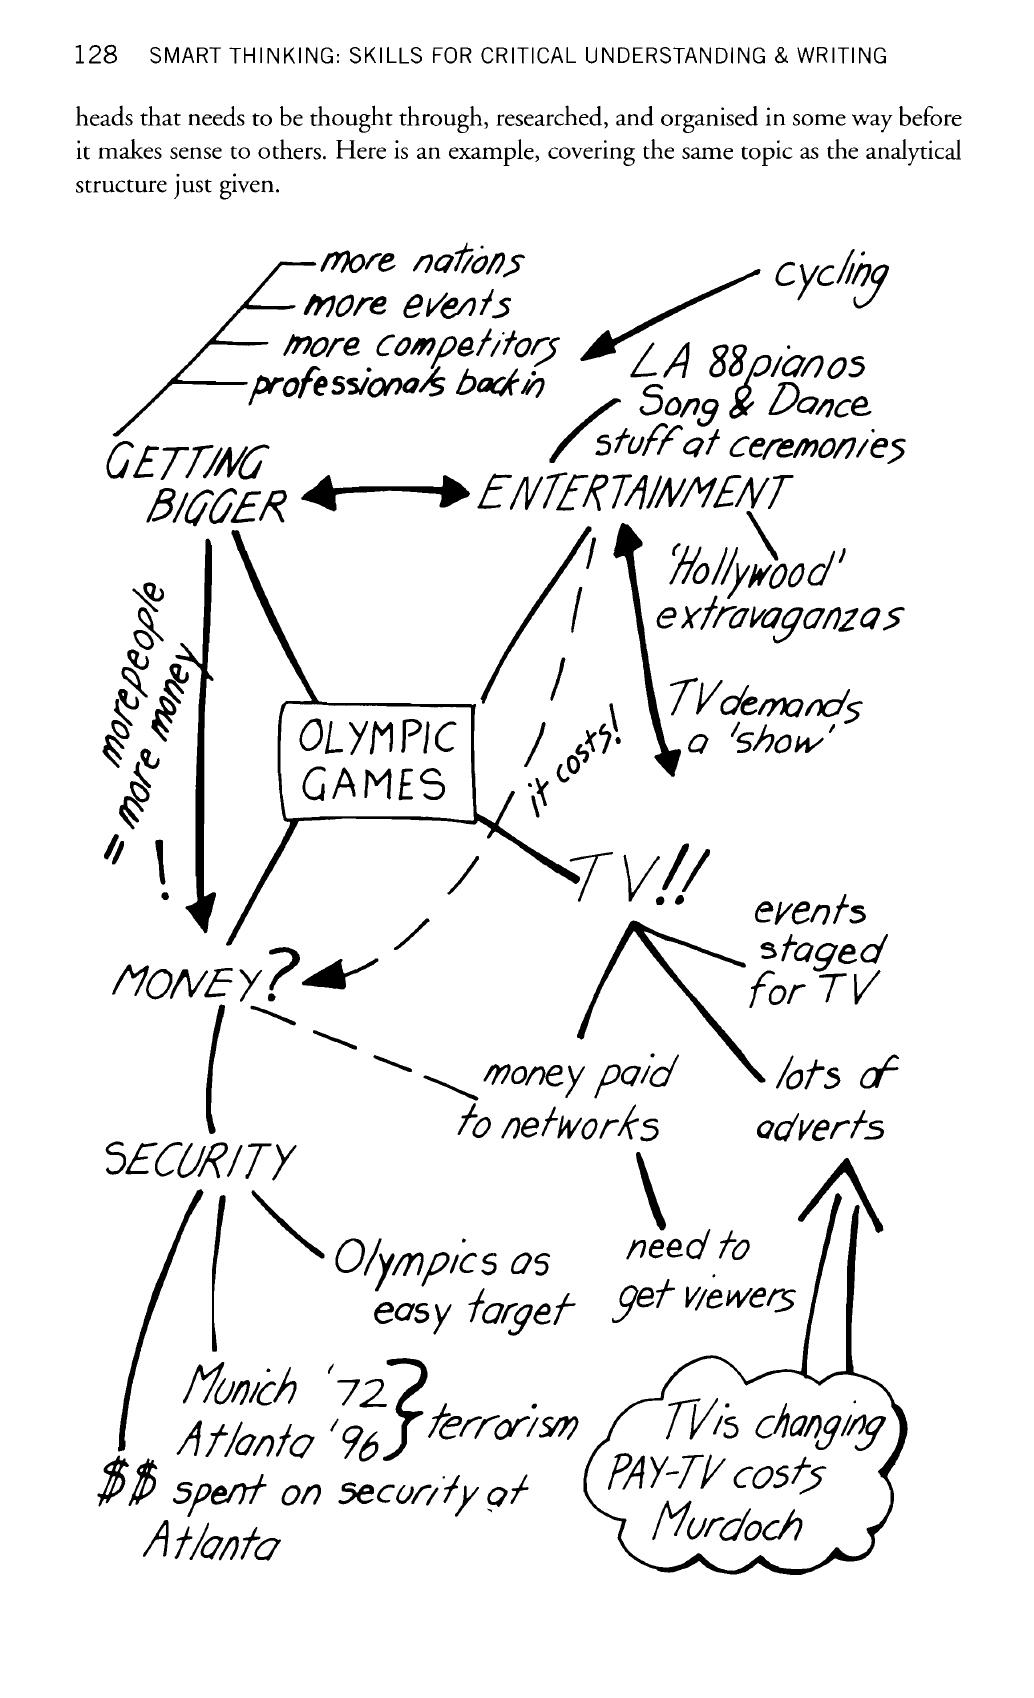 128 SMART THINKING: SKILLS FOR CRITICAL UNDERSTANDING & WRITING
heads that needs to be thought through, researched, and organised in some way before
it makes sense to others. Here is an example, covering the same topic as the analytical
structure just given.
more nations
more events
more competitors
professionals back in
cycling
LA 88 pianos
Song & Dance
stuff at ceremonies
GETTING
BIGGER
ENTERTAINMENT
'Hollywood'
extravaganzas
more people
= more money
!
TV demands
a 'show'
it costs!
OLYMPIC
GAMES
TV!!
events
staged
for TV
MONEY?
money paid
to networks
lots of
adverts
SECURITY
Olympics as
easy target
need to
get viewers
Munich '72
Atlanta '96
terrorism
$$ spent on security at
Atlanta
TV is changing
PAY-TV costs
Murdoch